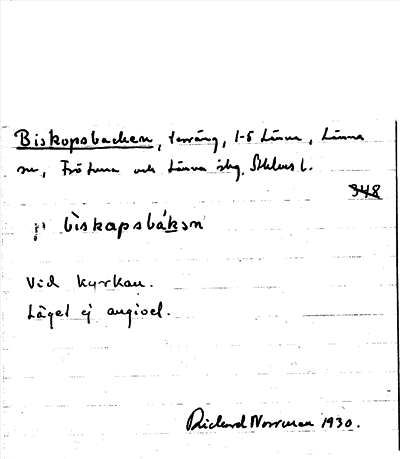 Biskopsbacken, terräng, 1-5 Länna, Länna
sn, Frötuna och Länna skg, Sthlms l.
348
i bìskapsbákən
Vid kyrkan.
Läget ej angivet.
Rickard Norrman 1930.